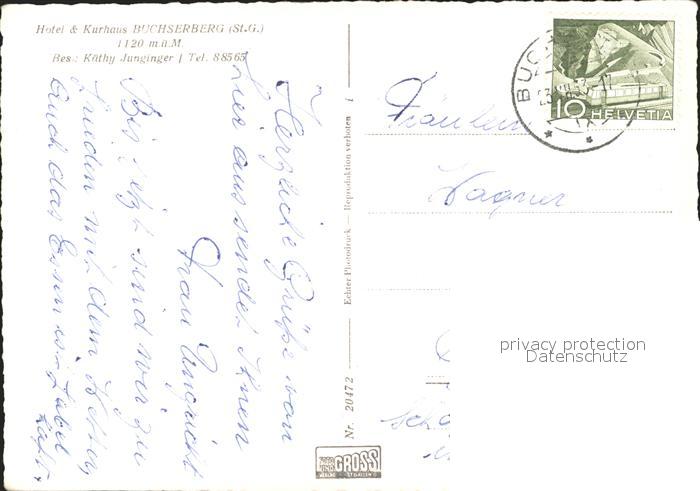 Hotel & Kurhaus BUCHSERBERG (St.G.)
1120 m ü.M.
Bes.: Käthy Junginger / Tel. 88565
Herzliche Grüße von
hier aus sendet Ihnen
Frau
Bis jetzt sind wir zu
frieden mit dem Wetter,
auch das Essen ist fabel
haft.
Nr. 20472 — Echter Photodruck — Reproduktion verboten
GROSS
ST.GALLEN
BUCHS
10 HELVETIA
Fräulein
Wagner
privacy protection
Datenschutz